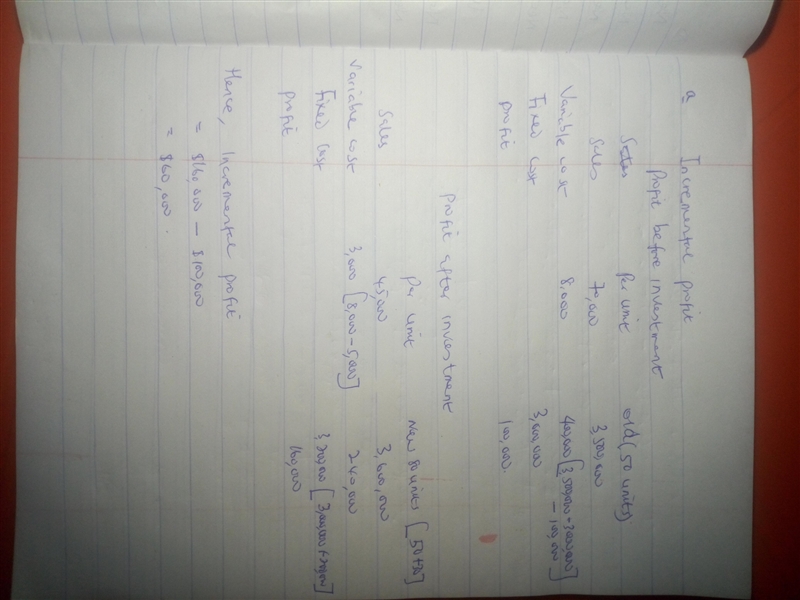 a Incremental profit
Profit before investment
Per unit old (50 units)
Sales 70,000 3,500,000
Variable cost 8,000 400,000 [3,500,000 - 3,000,000 - 100,000]
Fixed cost 3,000,000
profit 100,000.
Profit after investment
Per unit New 80 units [50+30]
Sales 45,000 3,600,000
Variable cost 3,000 [8,000-5,000] 240,000
Fixed cost 3,200,000 [3,000,000+200,000]
profit 160,000
Hence, Incremental profit
= $160,000 - $100,000
= $60,000.